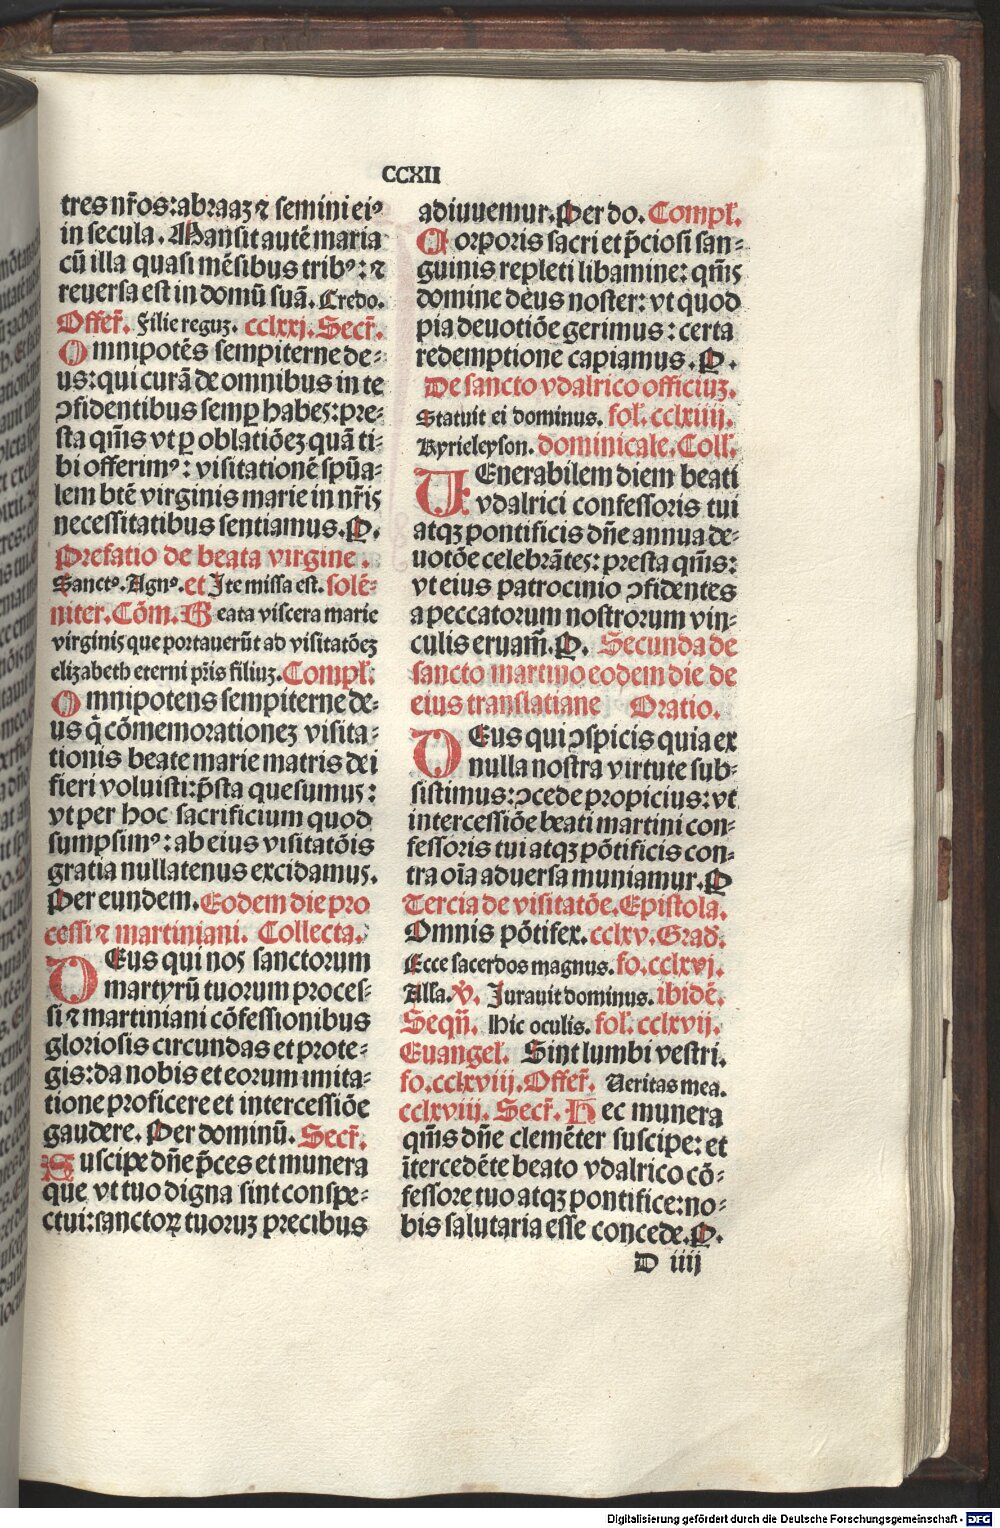 CCXII
tres nr̃os: abraaʒ ⁊ semini eiꝰ
in secula. Mansit autē maria
cū illa quasi mēsibus tribꝰ: ⁊
reuersa est in domū suā. Credo.
Offer̃. Filie reguʒ. cclxxj. Secr̃.
Omnipotēs sempiterne de⸗
us: qui curā de omnibus in te
ↄfidentibus semꝑ habes: pre⸗
sta qm̄s vt ꝑ oblatiōeʒ quā ti⸗
bi offerimꝰ: visitationē spūa⸗
lem btē virginis marie in nr̃is
necessitatibus sentiamus. P.
Prefatio de beata virgine.
Sanctꝰ. Agnꝰ. et Ite missa est. solē⸗
niter. Cōm. Beata viscera marie
virginis que portauerūt ad visitatōeʒ
elizabeth eterni pr̃is filiuʒ. Compl̃.
Omnipotens sempiterne de⸗
us q̄ cōmemorationeʒ visita⸗
tionis beate marie matris dei
fieri voluisti: p̄sta quesumus:
vt per hoc sacrificium quod
sumpsimꝰ: ab eius visitatōis
gratia nullatenus excidamus.
Per eundem. Eodem die pro
cessi ⁊ martiniani. Collecta.
DEus qui nos sanctorum
martyrū tuorum proces⸗
si ⁊ martiniani cōfessionibus
gloriosis circundas et prote⸗
gis: da nobis et eorum imita⸗
tione proficere et intercessiōe
gaudere. Per dominū. Secr̃.
Suscipe dn̄e p̄ces et munera
que vt tuo digna sint conspe⸗
ctui: sanctoꝝ tuoruʒ precibus
adiuuemur. Per do. Compl̃.
Corporis sacri et p̄ciosi san⸗
guinis repleti libamine: qm̄s
domine deus noster: vt quod
pia deuotiōe gerimus: certa
redemptione capiamus. P.
De sancto vdalrico officiuʒ.
Statuit ei dominus. fol. cclxiiij.
Kyrieleyson. dominicale. Coll̃.
VEnerabilem diem beati
vdalrici confessoris tui
atqʒ pontificis dn̄e annua de⸗
uotōe celebrātes: presta qm̄s:
vt eius patrocinio ↄfidentes
a peccatorum nostrorum vin⸗
culis eruam̄. P. Secunda de
sancto martino eodem die de
eius translatiane Oratio.
DEus qui ↄspicis quia ex
nulla nostra virtute sub⸗
sistimus: ↄcede propicius: vt
intercessiōe beati martini con⸗
fessoris tui atqʒ pōtificis con⸗
tra oīa aduersa muniamur. P
Tercia de visitatōe. Epistola.
Omnis pōtifex. cclxv. Grad.
Ecce sacerdos magnus. fo. cclxvj.
Alla. ℣. Jurauit dominus. ibidē.
Seqn̄. Hic oculis. fol. cclxvij.
Euangel̃. Sint lumbi vestri.
fo. cclxviij. Offer̃. Veritas mea.
cclxviij. Secr̃. Hec munera
qm̄s dn̄e clemēter suscipe: et
ītercedēte beato vdalrico cō⸗
fessore tuo atqʒ pontifice: no⸗
bis salutaria esse concede. P.
D iiij
Digitalisierung gefördert durch die Deutsche Forschungsgemeinschaft - DFG